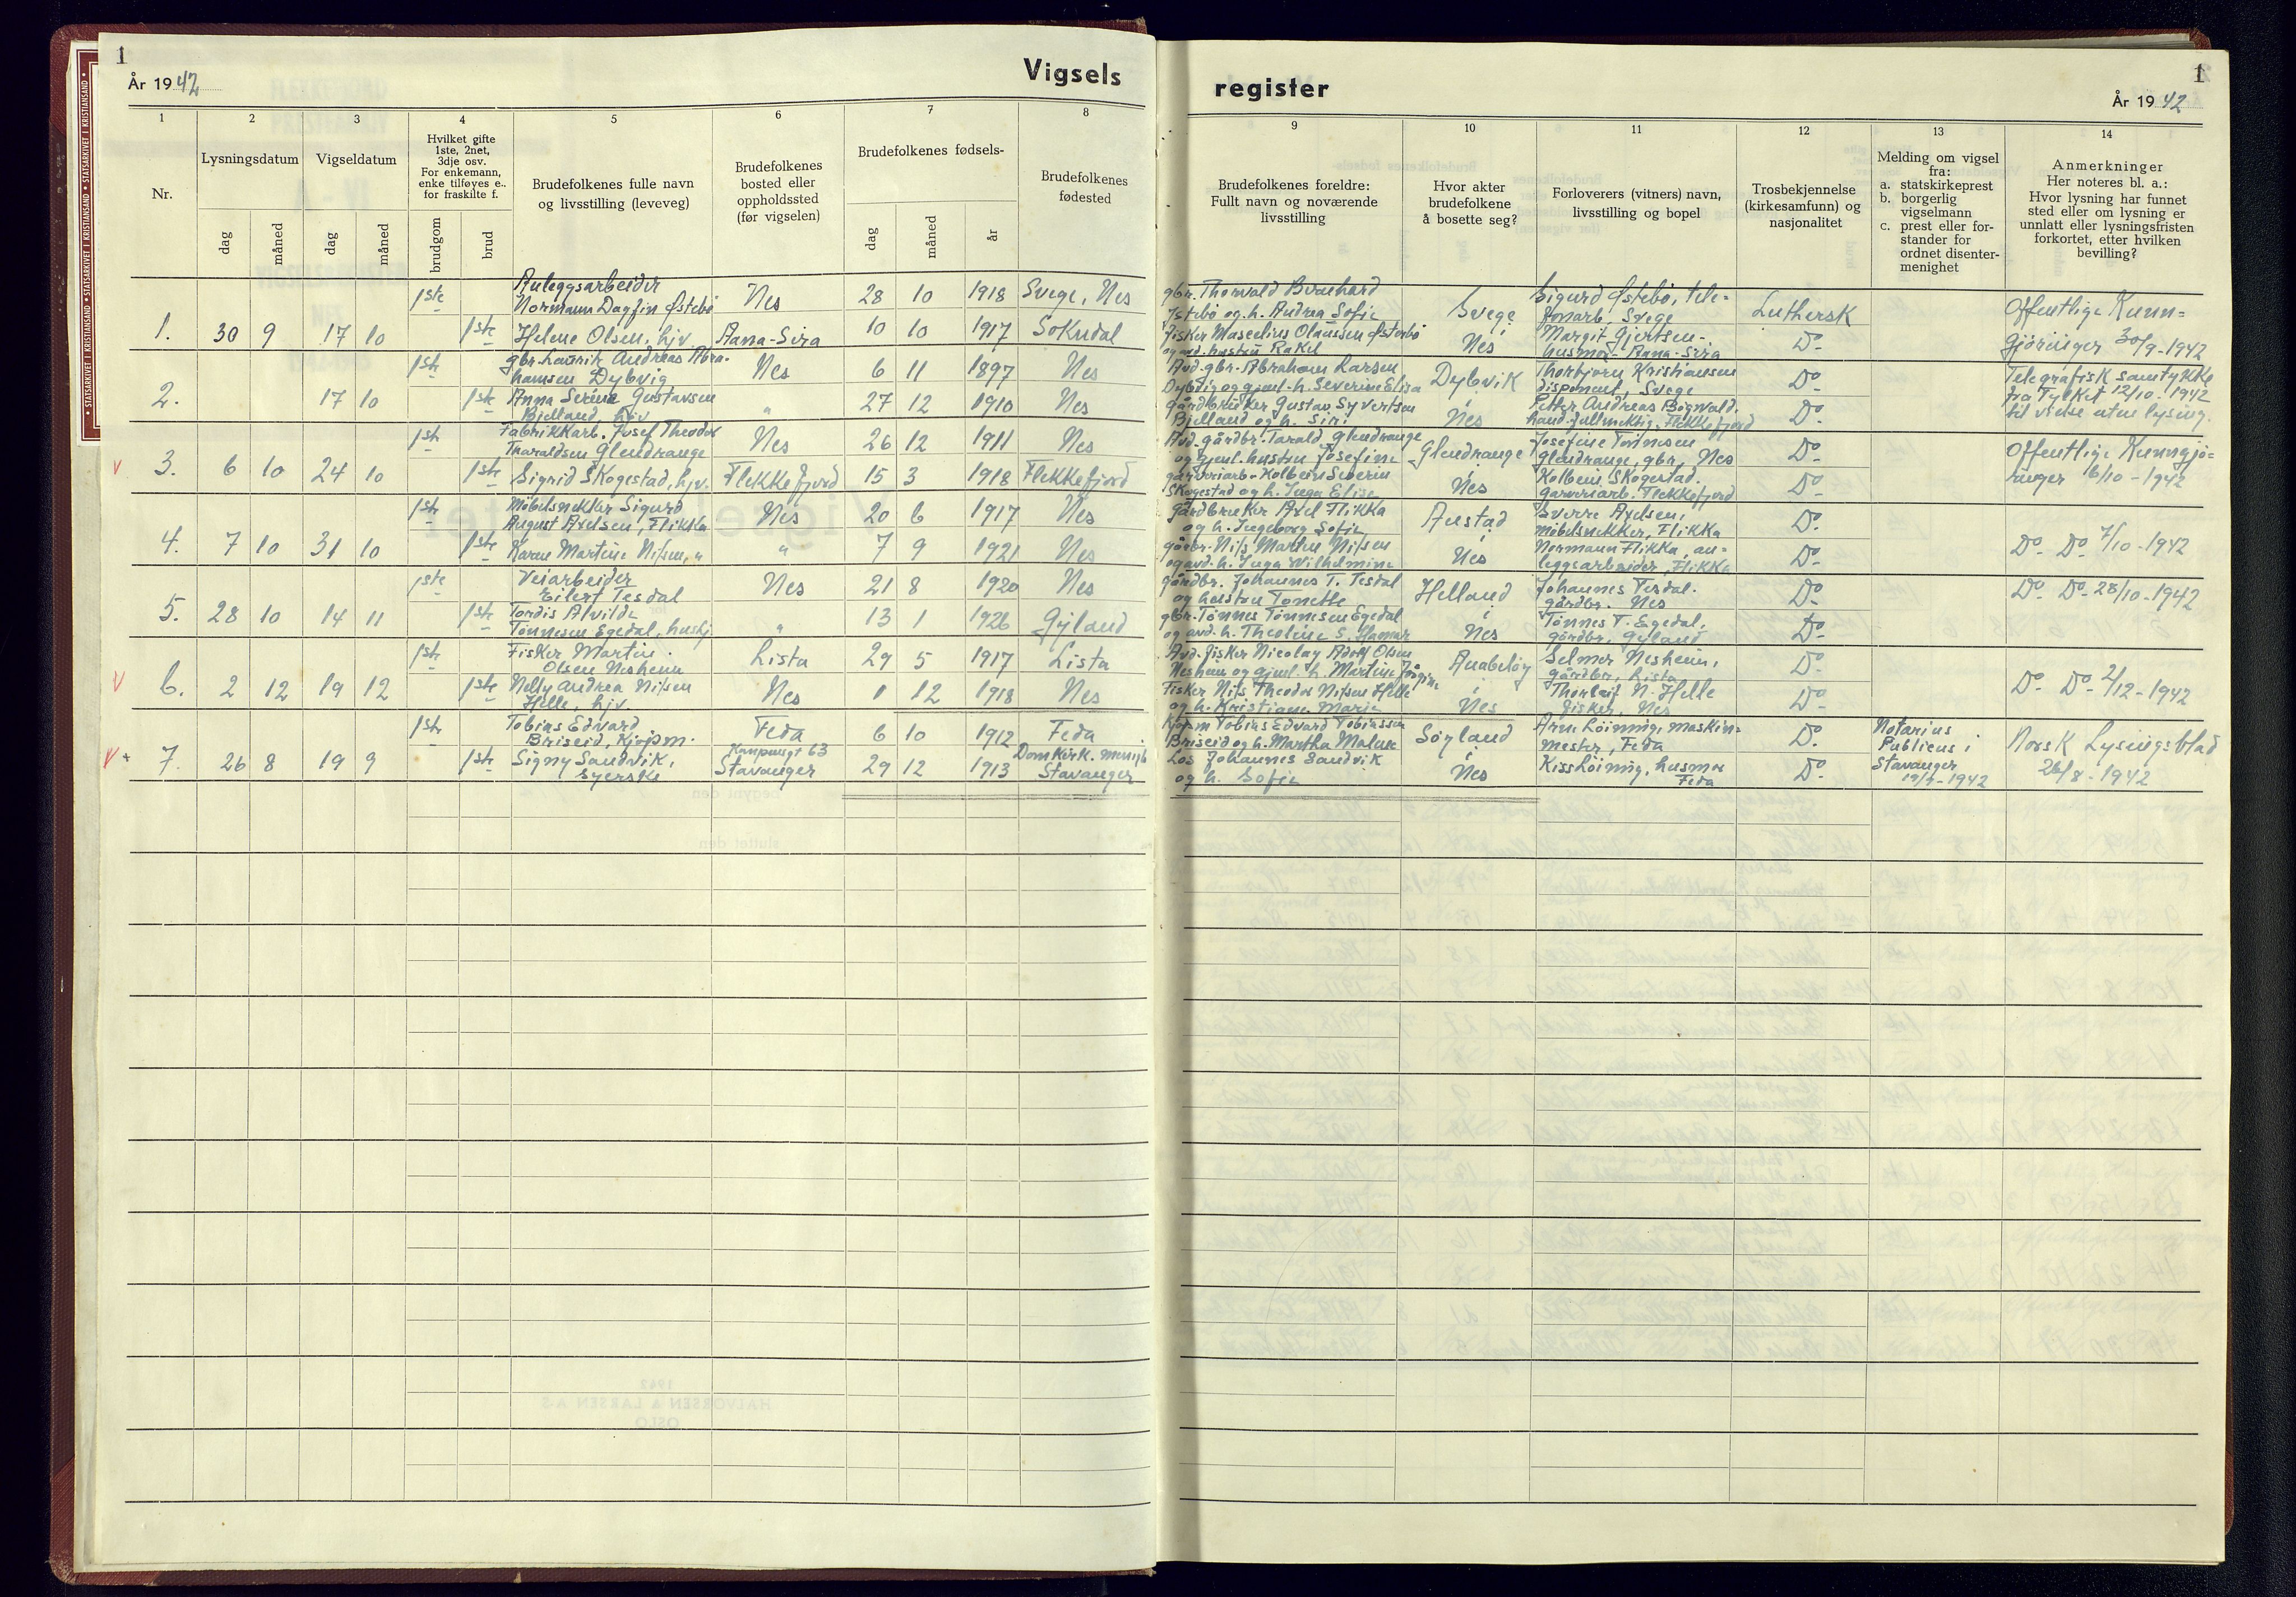 1
År 1942
Vigsels
register
1
År 1942
STATSARKIVET I KRISTIANSAND • STATSARKIVET I KRISTIANSAND • STATSARKIVET I KRISTIANSAND
1 2 3 4 5 6 7 8
Nr.
Lysningsdatum
dag måned
Vigseldatum
dag måned
Hvilket gifte
1ste, 2net,
3dje osv.
For enkemann,
enke tilføyes e..
for fraskilte f.
brudgom brud
Brudefolkenes fulle navn
og livsstilling (leveveg)
Brudefolkenes
bosted eller
oppholdssted
(før vigselen)
Brudefolkenes fødsels-
dag måned år
Brudefolkenes
fødested
9 10 11 12 13 14
Brudefolkenes foreldre:
Fullt navn og noværende
livsstilling
Hvor akter
brudefolkene
å bosette seg?
Forloverers (vitners) navn,
livsstilling og bopel
Trosbekjennelse
(kirkesamfunn) og
nasjonalitet
Melding om vigsel
fra:
a. statskirkeprest
b. borgerlig
vigselmann
c. prest eller for-
stander for
ordnet disenter-
menighet
Anmerkninger
Her noteres bl. a.:
Hvor lysning har funnet
sted eller om lysning er
unnlatt eller lysningsfristen
forkortet, etter hvilken
bevilling?
1. 30 9 17 10
1ste Anleggsarbeider
Normann Dagfin Østebö Nes 28 10 1918 Svege, Nes
1ste Helene Olsen, hjv. Aana-Sira 10 10 1917 Sokndal
gbr. Thorvald Bernhard
Østebö og h. Andrea Sofie
Fisker Olaussen Østerbö
og avd. hustru Rakel
Svege
i
Nes
Sigurd Østebö, tele-
fonarb. Svege
Margit Gjertsen-
husmor- Aana-Sira
Luthersk
Do-
Offentlige Kunn-
gjöringer 30/9-1942
2. 17 10
1ste gbr. Andreas Abra-
hamsen Dybvig Nes 6 11 1897 Nes
1ste Anna Serine Gustavsen
Bjelland, hjv " 27 12 1910 Nes
Avd. gbr. Abraham Larsen
Dybvig og gjenl. h. Severine Elisa
Gårdbruker Gustav Syvertsen
Bjelland og h. Siri
Dybvik
i
Nes
Thorbjörn Kristiansen
disponent, Svege
Petter Andreas
hand. fullmektig, Flekkefjord
Do
Do.
Telegrafisk samtykke
fra Fylket 12/10. 1942
til vielse uten lysing.
v 3. 6 10 24 10
1ste Fabrikkarb. Josef Theodor
Tharaldsen Glendrange Nes 26 12 1911 Nes
1ste Sigrid Skogestad, hjv. Flekkefjord 15 3 1918 Flekkefjord
Avd. gårdbr. Tarald Glendrange
og gjenl. hustru Josefine
garveriarb- Kolbein Severin
Skogestad og h. Inga Elise
Glendrange
i
Nes
Josefine Tönnesen
Glendrange, gbr, Nes
Kolbein Skogestad.
garveriarb. Flekkefjord
Do-
Do-
Offentlige Kunngjö-
ringer 6/10-1942
4. 7 10 31 10
1ste Möbelsnekker Sigurd
August Axelsen, Flikka Nes 20 6 1917 Nes
1ste Karen Martine Nilsen, " " 7 9 1921 Nes
Gårdbruker Axel Flikka
og h. Ingeborg Sofie
gårdbr. Nils Martin Nilsen
og avd. h. Inga Wilhelmine
Austad
i
Nes
Sverre Axelsen,
möbelsnekker, Flikka
Normann Flikka, an-
leggsarbeider, Flikka
Do-
Do-
Do- Do- 7/10-1942
5. 28 10 14 11
1ste Veiarbeider
Eilert Tesdal Nes 21 8 1920 Nes
1ste Tordis Alvilde
Tönnesen Egedal, hushj " 13 1 1926 Gyland
gårdbr. Johannes T. Tesdal
og hustru Tonette
gbr. Tönnes Tönnesen Egedal
og avd. h. Theoline S. Hamar
Helland
i
Nes
Johannes Tesdal.
gårdbr. Nes
Tönnes T. Egedal,
gårdbr, Gyland
Do-
Do-
Do- Do- 28/10-1942
v 6. 2 12 19 12
1ste Fisker Martin
Olsen Nesheim Lista 29 5 1917 Lista
1ste Nelly Andrea Nilsen
Helle, hjv. Nes 1 12 1918 Nes
Avd. fisker Nicolay Adolf Olsen
Nesheim og gjenl. h. Martine Jörgine
Fisker Nils Theodor Nilsen Helle
og h. Kristiane Marie
Anabelöy
i
Nes
Selmer Nesheim,
gårdbr, Lista
Thorleif N. Helle
fisker, Nes
Do-
Do-
Do- Do- 2/12-1942
v + 7. 26 8 19 9
1ste Tobias Edvard
Briseid, Kjöpm. Feda 6 10 1912 Feda
1ste Signy Sandvik,
syerske Kanpensgt 63
Stavanger 29 12 1913 Domkirk. menigh
Stavanger
Kjöpm Tobias Edvard Tobiassen
Briseid og h. Martha Malene
Los Johannes Sandvik
og h. Sofie
Söyland
i
Nes
Arne Löining, maskin-
mester, Feda
Kiss Löining, husmor
Feda
Do.
Do-
Notarius
Publicus i
Stavanger
19/9-1942
Norsk Lysingsblad
26/8-1942